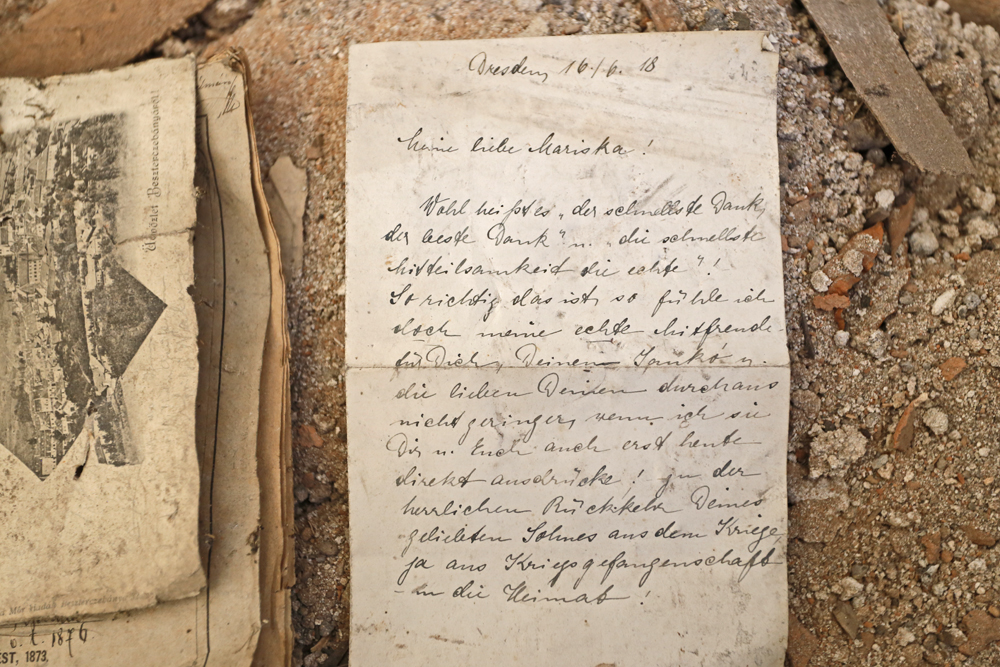 Üdvözlet Besztercebányáról!
o. l. 1876
EST, 1873.
Dresden, 16./6. 18
Meine liebe Mariska!
Wohl heißt es „der schnellste Dank,
der beste Dank" u. „die schnellste
Mitteilsamkeit die echte"!
So richtig das ist, so fühle ich
doch meine echte Mitfreude
für Dich, Deinen Jankó u.
die lieben Deinen durchaus
nicht geringer, wenn ich sie
Dir u. Euch auch erst heute
direkt ausdrücke! Zu der
herrlichen Rückkehr Deines
geliebten Sohnes aus dem Kriege,
ja aus Kriegsgefangenschaft
– in die Heimat!